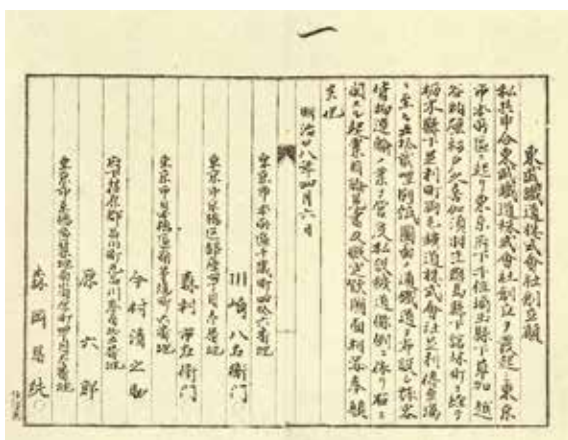 一
東武鐵道株式會社創立願
私共申合東武鐵道株式會社創立ヲ發起シ東京
市本所區ニ起リ東京府下千住埼玉縣下草加越
谷粕壁杉戸久喜加須羽生群馬縣下舘林町ヲ経テ
栃木縣下足利町両毛鐵道株式會社足利停車場
ニ至ル五拾貳哩別紙圖面ノ通鐵道ヲ布設シ旅客
貨物運輸ノ業ヲ営ミ私設鐵道條例ニ依リ右ニ
関スル起業目論見書及假定款圖面相添奉願
候也
明治廿八年四月六日
東京市本所區千歳町四拾六番地
川崎八右衛門
東京市京橋區銀座四丁目壱番地
森村市左衛門
東京市日本橋區兜町六番地
今村清之助
府下荏原郡品川町
原六郎
東京市京橋區築地
森岡昌純